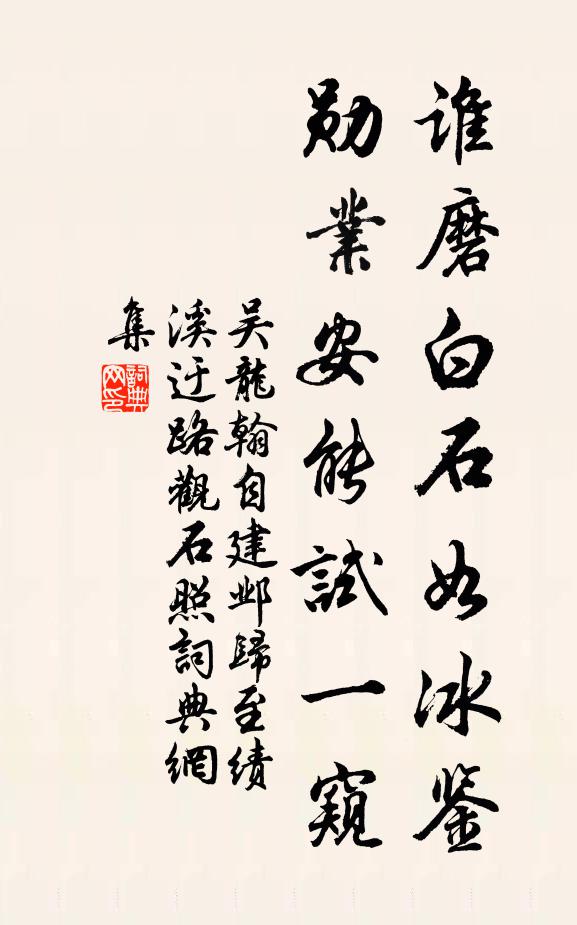 谁磨白石如冰鉴
勋業安能試一窺
吴龍翰自建邺歸至績
溪迂路觀石照詞典網
集
詞典
网印